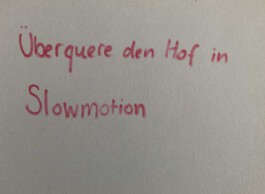 Überquere den Hof in
Slowmotion